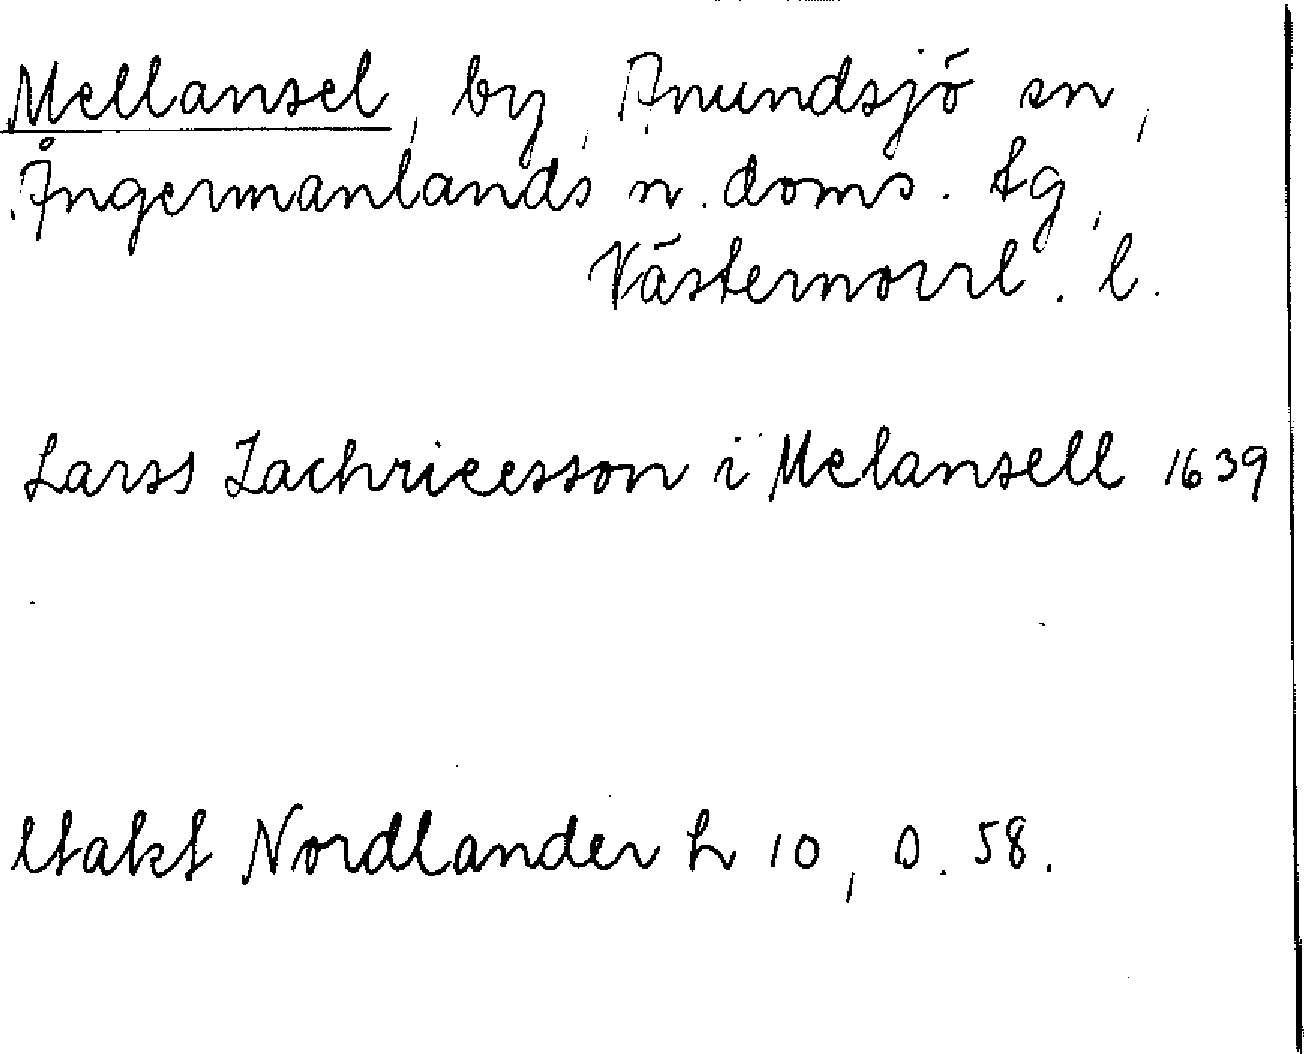 Mellansel, by, Anundsjö sn,
Ångermanlands n. doms. tg,
Västernorrl. l.
Larss Zachricesson i Melansell 1639
Utakt Nordlander h 10, s. 58.